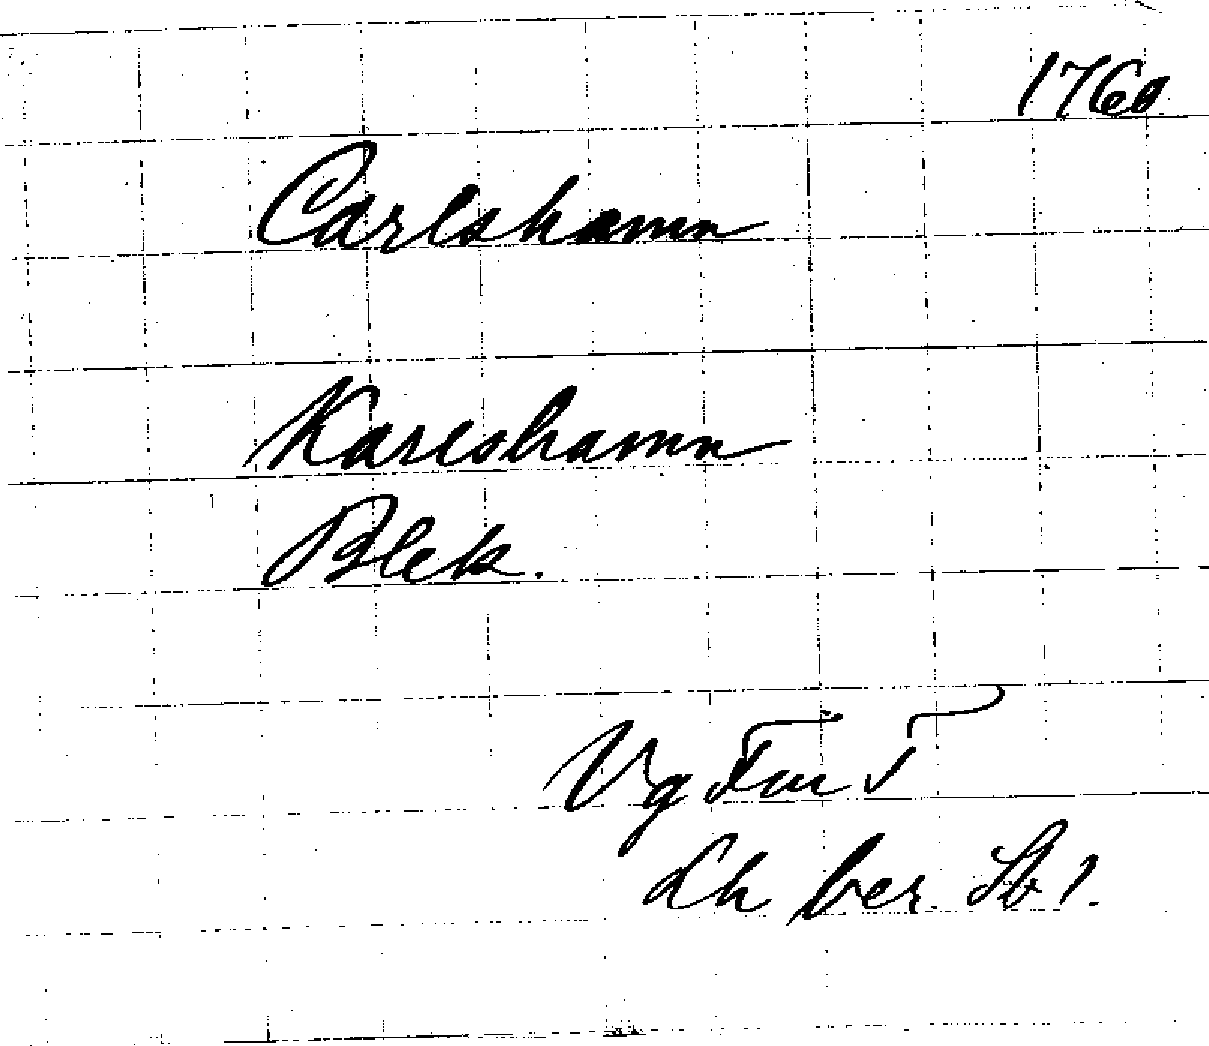 1760
Carlshamn
Karlshamn
Blek.
Vg Fm
Lh ber. Sb 1.